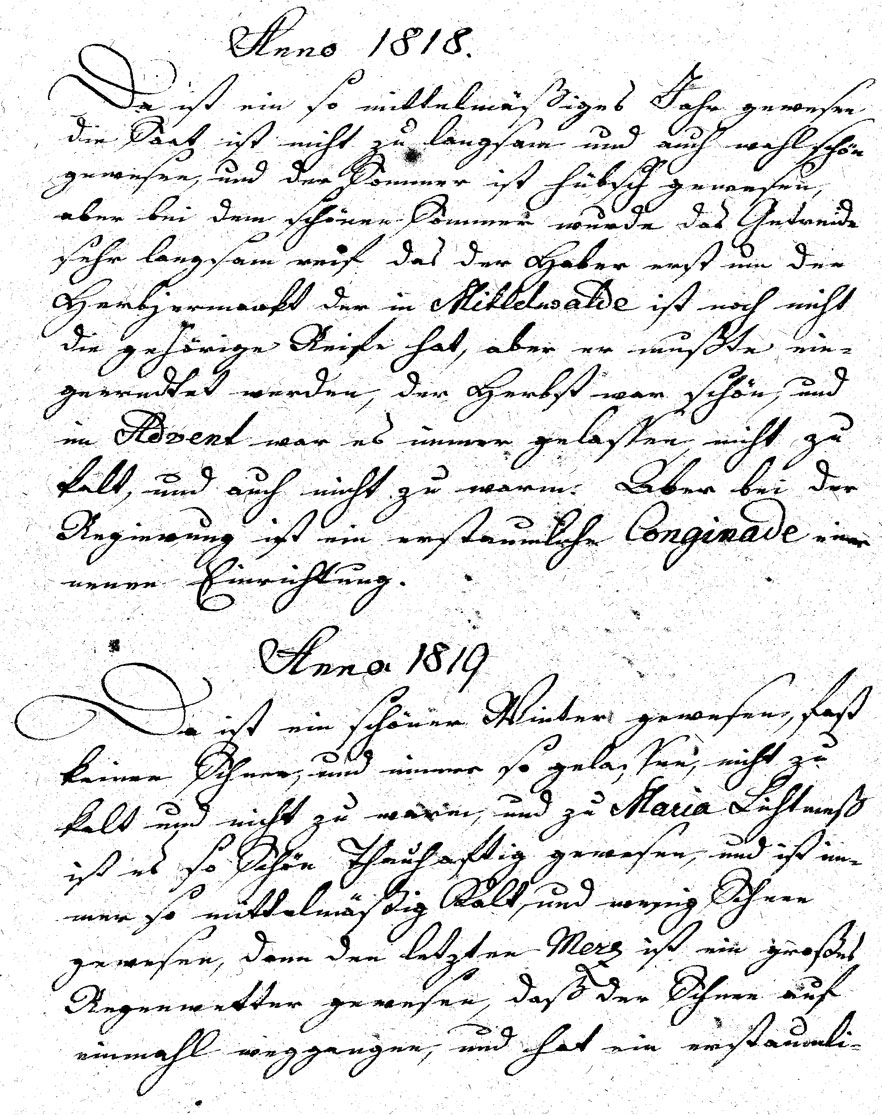 Anno 1818.
Da ist ein so mittelmäßiges Jahr gewesen
die Saat ist nicht zu langsam und auch wohl schön
gewesen, und der Sommer ist hübsch gewesen,
aber bei dem schönen Sommer wurde das Getreide
sehr langsam reif das der Haber erst um den
Herbstjermarkt der in Mittelwalde ist noch nicht
die gehörige Reife hat, aber er mußte ein=
geerndtet werden, der Herbst war schön, und
im Advent war es immer gelassen nicht zu
kalt, und auch nicht zu warm. Aber bei der
Regierung ist ein erstaunliche Conginade einer
neuen Einrichtung.
Anno 1819
Da ist ein schöner Winter gewesen, fast
keinen Schnee, und immer so gelassen, nicht zu
kalt und nicht zu warm, und zu Maria Lichtmeß
ist es so Schön Thauhaftig gewesen, und ist im=
mer so mittelmäßig Kalt, und wenig Schnee
gewesen, dann den letzten Merz ist ein großes
Regenwetter gewesen, daß der Schnee auf
einmahl weggangen, und hat ein erstaunli=